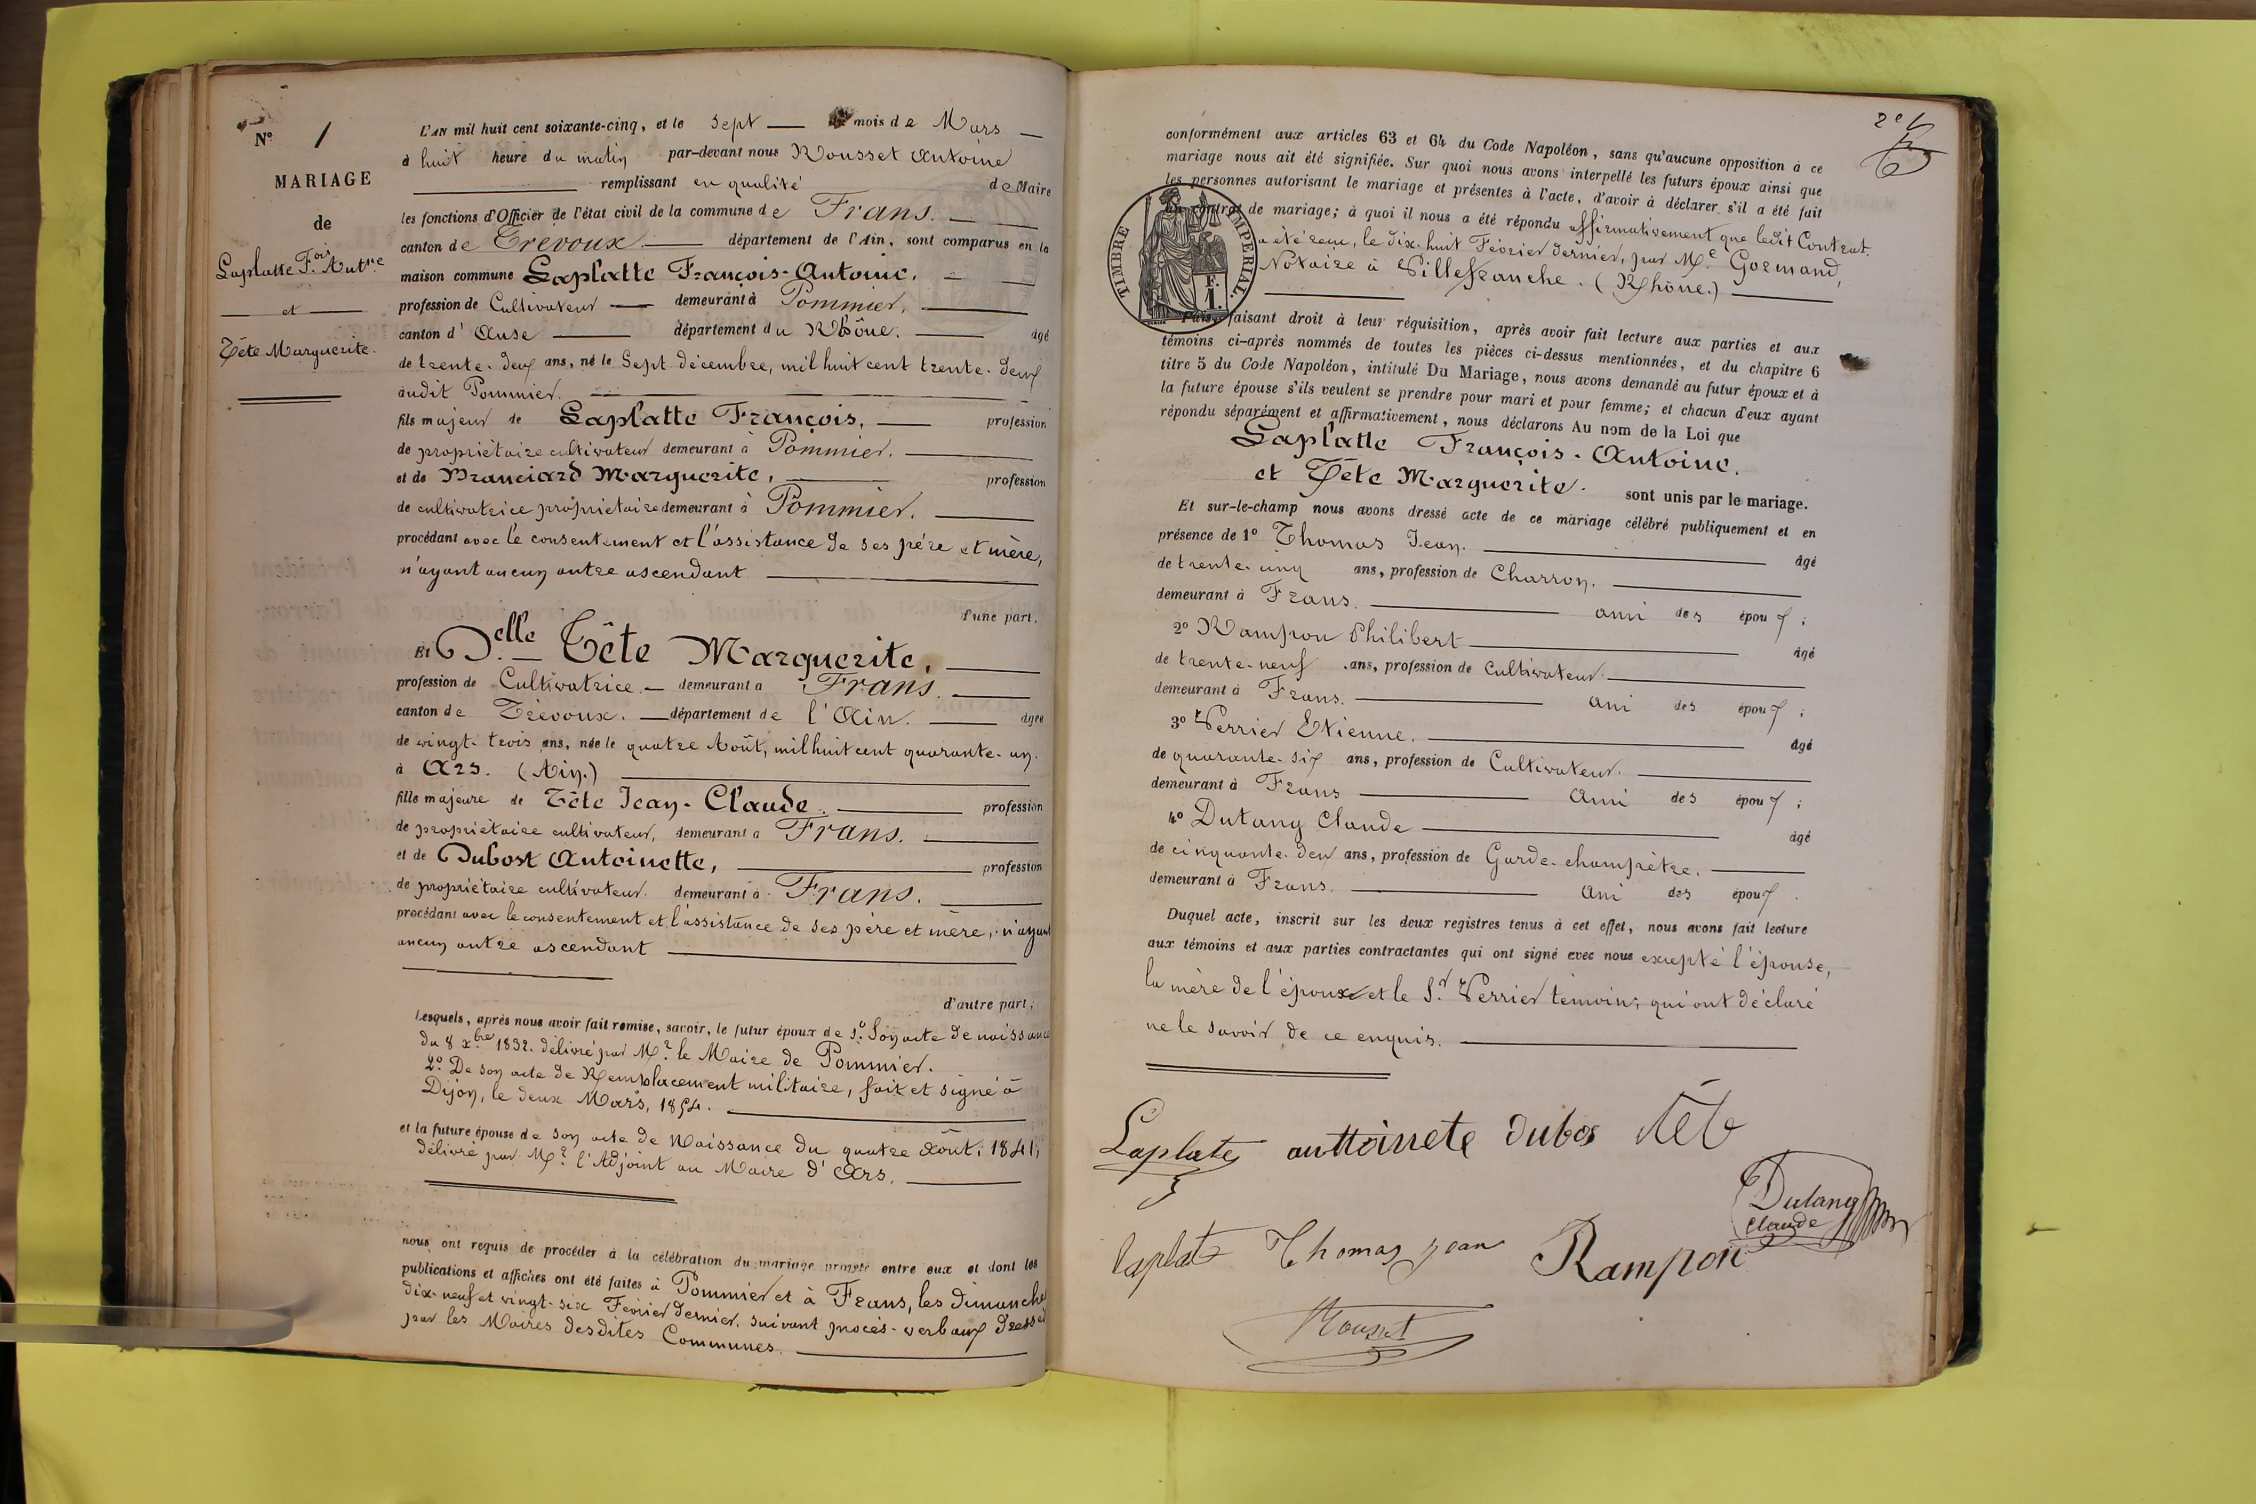 N° 1
MARIAGE
de
Laplatte F.ois Ant.ne
et
Tête Marguerite.
L'AN mil huit cent soixante-cinq, et le sept mois de Mars
à huit heure du matin par-devant nous Rousset Antoine
remplissant en qualité de Maire
les fonctions d'Officier de l'état civil de la commune de Frans.
canton de Trévoux. département de l'Ain, sont comparus en la
maison commune Laplatte François-Antoine,
profession de Cultivateur demeurant à Pommier,
canton d'Anse département du Rhône. âgé
de trente-deux ans, né le Sept décembre, mil huit cent trente-deux
audit Pommier.
fils majeur de Laplatte François, profession
de propriétaire cultivateur demeurant à Pommier.
et de Branciard Marguerite, profession
de cultivatrice propriétaire demeurant à Pommier.
procédant avec le consentement et l'assistance de ses père et mère,
n'ayant aucun autre ascendant
d'une part.
Et D.elle Tête Marguerite,
profession de Cultivatrice. demeurant à Frans.
canton de Trévoux. département de l'Ain. âgée
de vingt-trois ans, née le quatre Août, mil huit cent quarante-un.
à Ars. (Ain.)
fille majeure de Tête Jean-Claude. profession
de propriétaire cultivateur, demeurant à Frans.
et de Dubost Antoinette, profession
de propriétaire cultivateur. demeurant à Frans.
procédant avec le consentement et l'assistance de ses père et mère, n'ayant
aucun autre ascendant
d'autre part;
Lesquels, après nous avoir fait remise, savoir, le futur époux de 1.° Son acte de naissance
du 8 x.bre 1832. délivré par M.r le Maire de Pommier.
2.° De son acte de Remplacement militaire, fait et signé à
Dijon, le deux Mars, 1854.
et la future épouse de son acte de Naissance du quatre Août, 1841,
délivré par M.r l'Adjoint au Maire d'Ars.
nous ont requis de procéder à la célébration du mariage projeté entre eux et dont les
publications et affiches ont été faites à Pommier et à Frans, les dimanches
dix-neuf et vingt-six Février dernier. suivant procès-verbaux dressés
par les Maires desdites Communes.
2e
conformément aux articles 63 et 64 du Code Napoléon, sans qu'aucune opposition à ce
mariage nous ait été signifiée. Sur quoi nous avons interpellé les futurs époux ainsi que
les personnes autorisant le mariage et présentes à l'acte, d'avoir à déclarer s'il a été fait
un contrat de mariage; à quoi il nous a été répondu affirmativement que ledit Contrat
a été reçu, le dix-huit Février dernier, par M.e Gormand,
Notaire à Villefranche. (Rhône.)
TIMBRE IMPÉRIAL.
F.
1.
Puis, faisant droit à leur réquisition, après avoir fait lecture aux parties et aux
témoins ci-après nommés de toutes les pièces ci-dessus mentionnées, et du chapitre 6
titre 5 du Code Napoléon, intitulé Du Mariage, nous avons demandé au futur époux et à
la future épouse s'ils veulent se prendre pour mari et pour femme; et chacun d'eux ayant
répondu séparément et affirmativement, nous déclarons Au nom de la Loi que
Laplatte François-Antoine.
et Tête Marguerite. sont unis par le mariage.
Et sur-le-champ nous avons dressé acte de ce mariage célébré publiquement et en
présence de 1° Thomas Jean. âgé
de trente-cinq ans, profession de Charron.
demeurant à Frans. ami des époux;
2° Rampon Philibert âgé
de trente-neuf ans, profession de Cultivateur.
demeurant à Frans. ami des époux;
3° Verrier Etienne. âgé
de quarante-six ans, profession de Cultivateur.
demeurant à Frans ami des époux;
4° Dutang Claude âgé
de cinquante-deux ans, profession de Garde-champêtre.
demeurant à Frans. ami des époux.
Duquel acte, inscrit sur les deux registres tenus à cet effet, nous avons fait lecture
aux témoins et aux parties contractantes qui ont signé avec nous excepté l'épouse,
la mère de l'époux et le S.r Verrier témoin; qui ont déclaré
ne le savoir de ce enquis.
Laplate anttoinete dubos têt
Dutang
Claude
laplat Thomas jean Rampon
Rousset